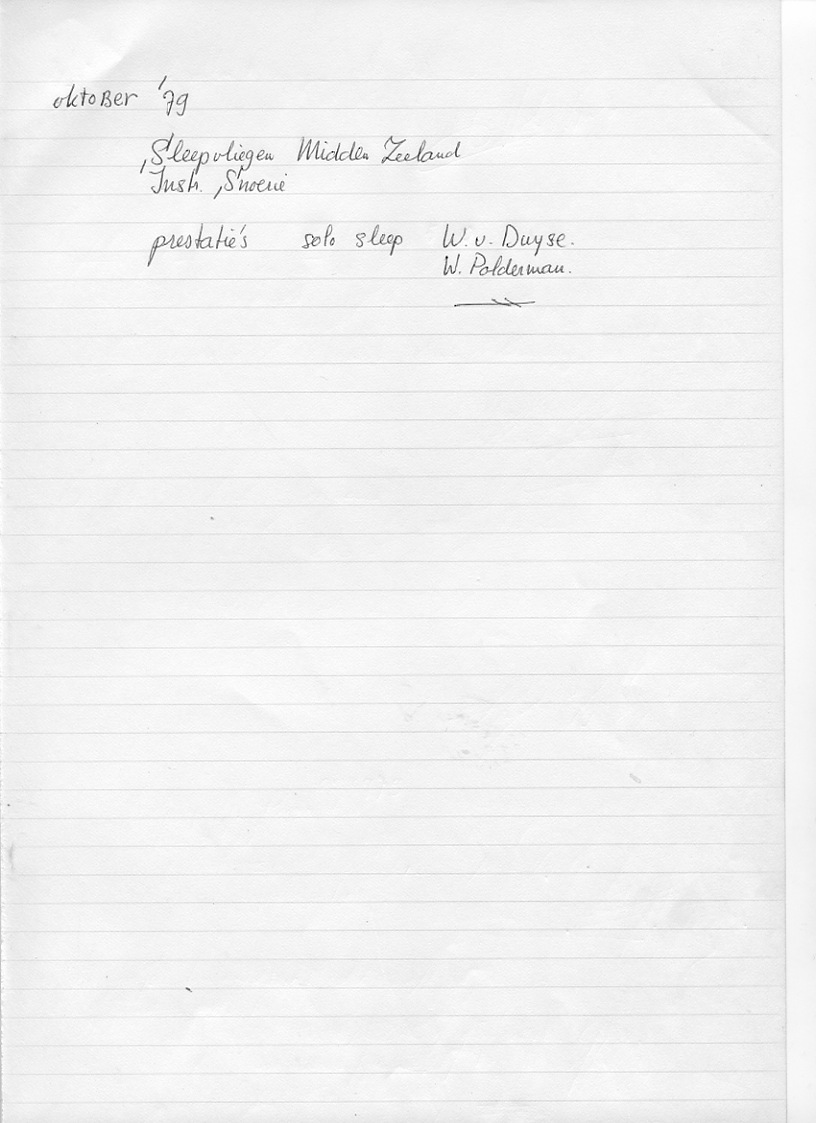 oktober '79
Sleepvliegen Midden Zeeland
Instr. Snoeie
prestatie's solo sleep W. v. Duyse.
W. Polderman.